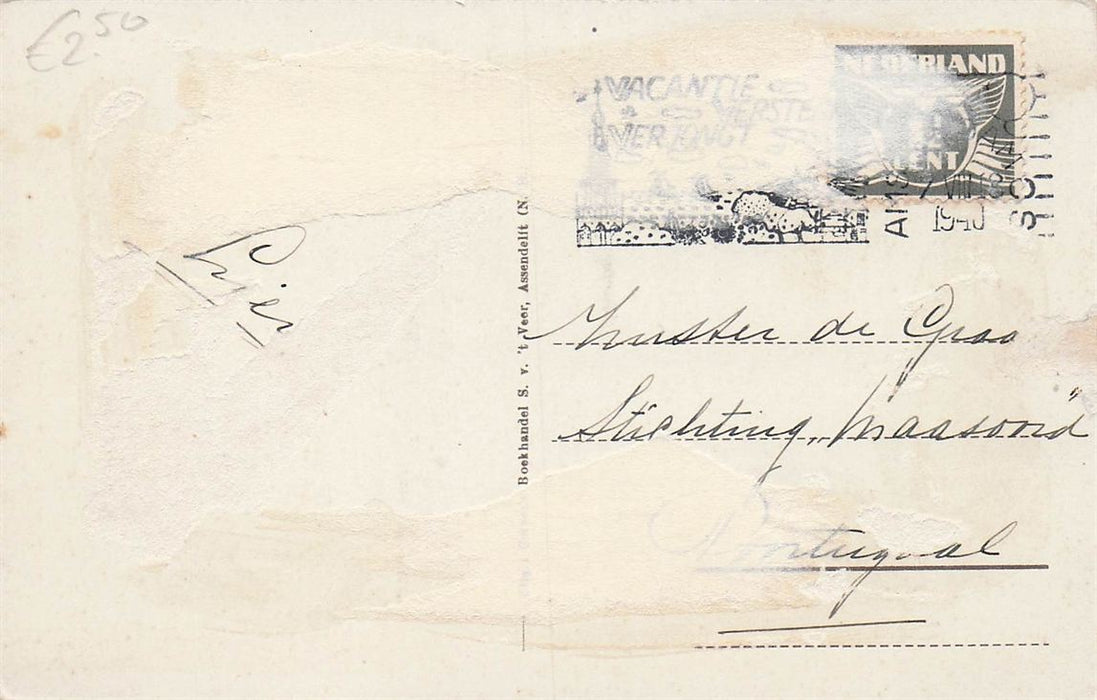 €2.50
VACANTIE
VERSTE
VERJONGT
NEDERLAND
CENT
VIII
1940
Boekhandel S. v. 't Veer, Assendelft (N.
Zuster de Graa
Stichting „Maasoord"
Poortugaal